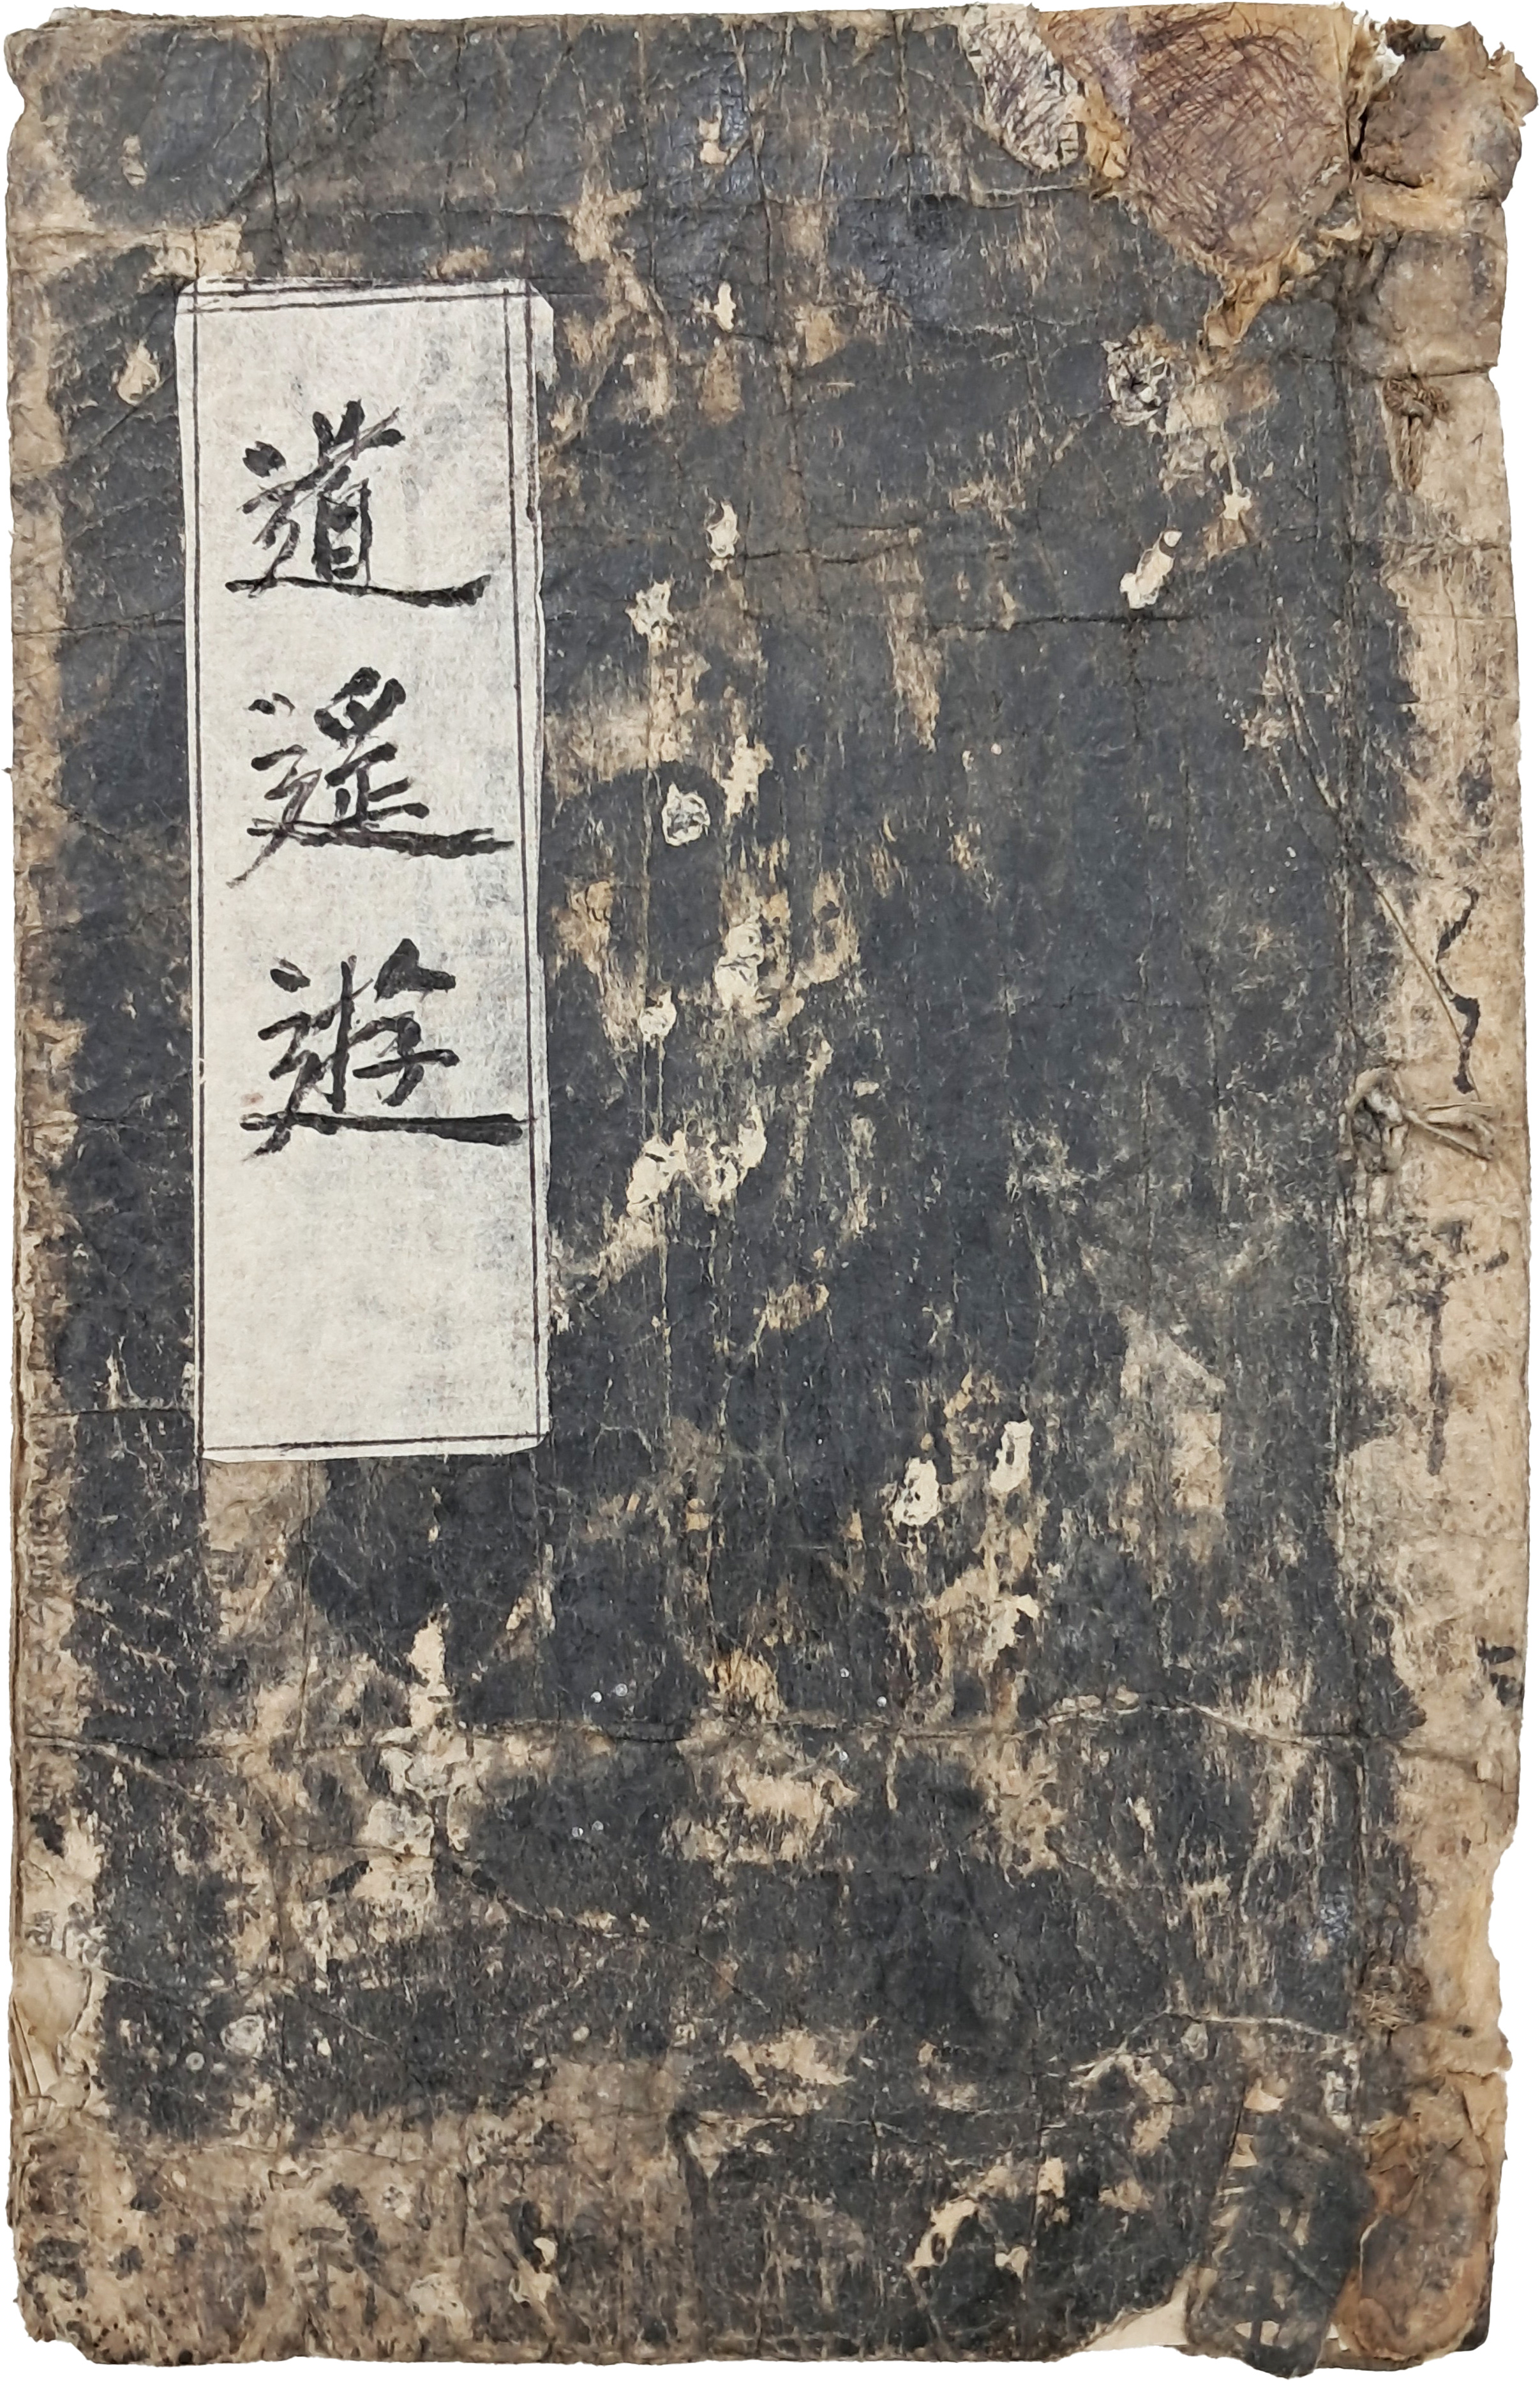 道遥遊